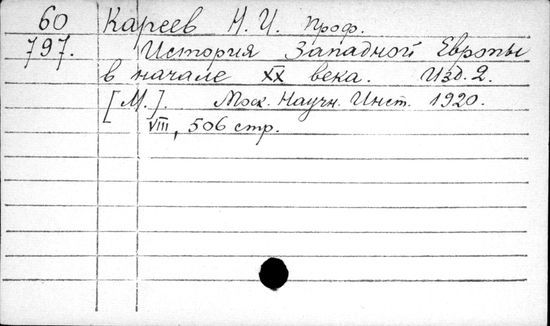 60 Кареев Н. И. проф.
797. История Западной Европы
в начале XX века. Изд. 2.
[М.]. Моск. Научн. Инст. 1920.
VIII, 506 стр.